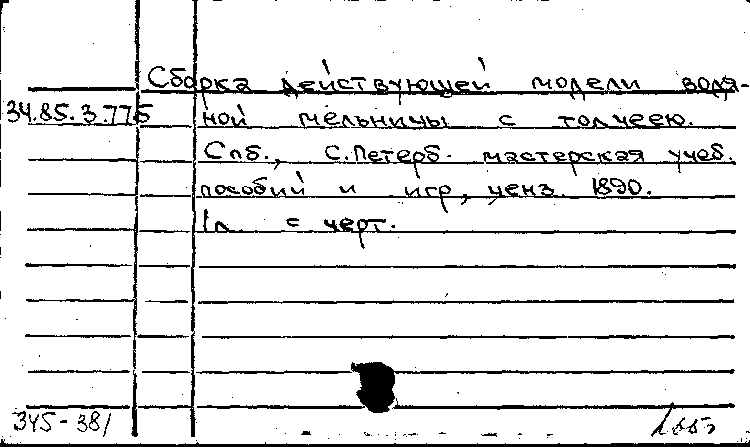 Сборка действующей модели водя-
34.85.3.775 ной мельницы с толчеею.
Спб., С.Петерб. мастерская учеб.
пособий и игр, ценз. 1890.
1л. с черт.
345-381